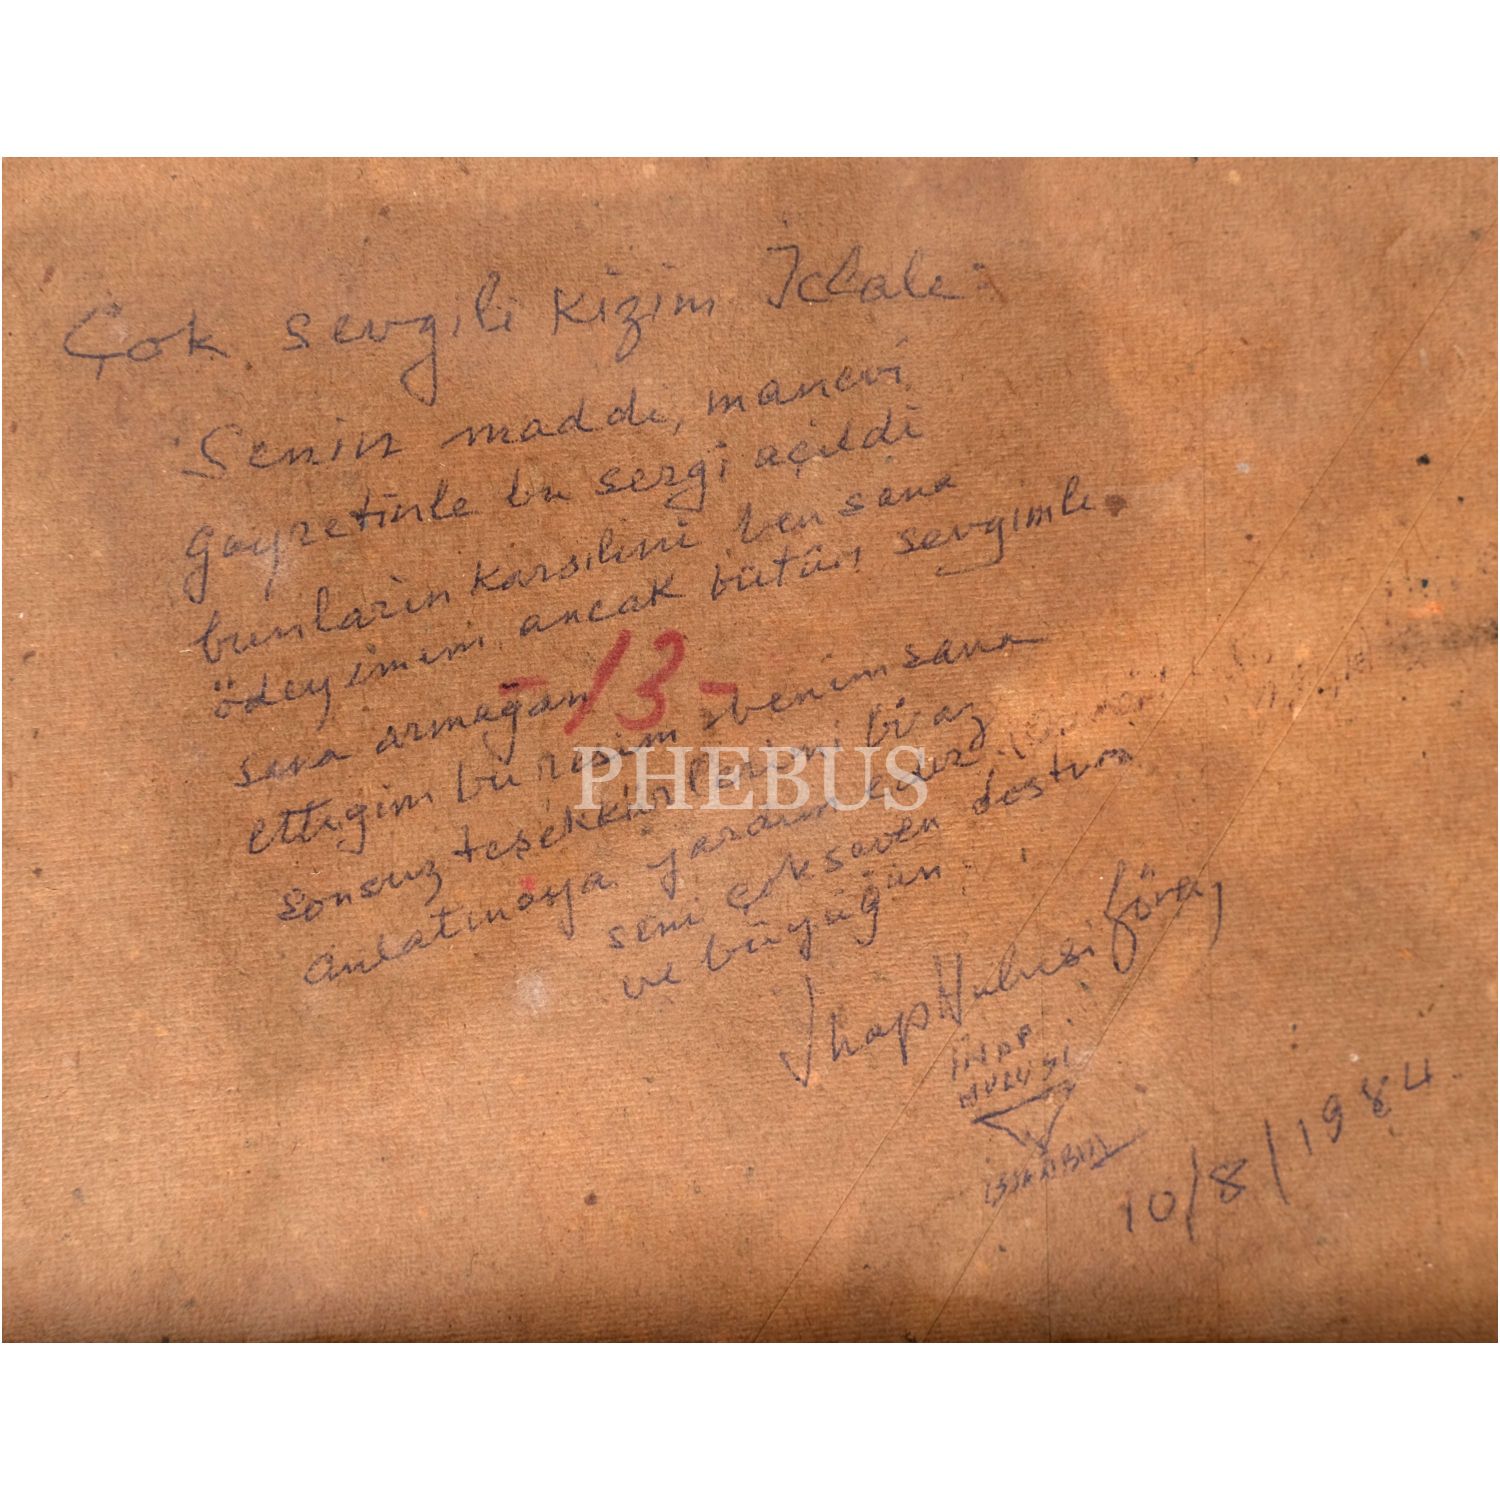 Çok sevgili kizim İclale:
Senin maddi, manevi
gayretinle bu sergi açıldi
bunlarin karsılini ben sana
ödeyimem ancak bütün sevgimle
sana armağan
-13-
ettigim bu resim benim sana
sonsuz teşekkürlerimi biraz
anlatmaya yardım eder.
seni çok seven dostun
ve büyüğün.
İhap Hulusi Görey
İHAP
HULUSİ
İSTANBUL
10/8/1984.
PHEBUS